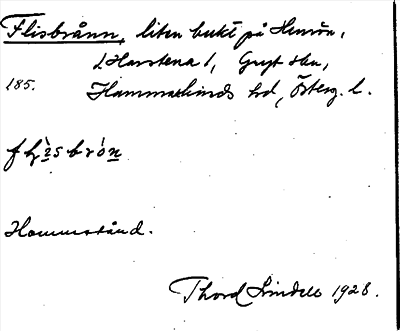 Flisbrånn, liten bukt på Hemön,
1 Harstena 1, Gryt skn,
185. Hammarkinds hd, Österg. l.
Hammarstrand.
Thord Lindell 1928.